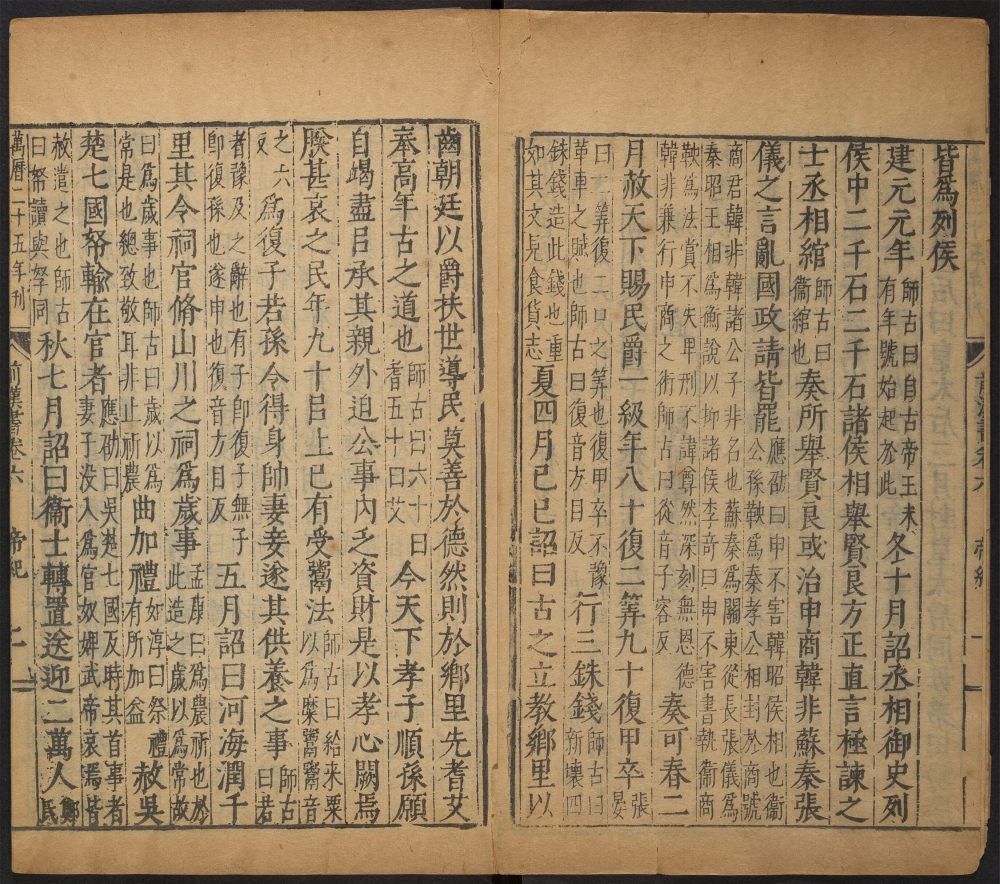 皆爲列侯
建元元年師古曰自古帝王未有年號始起於此冬十月詔丞相御史列
侯中二千石二千石諸侯相舉賢良方正直言極諫之
士丞相綰師古曰衞綰也奏所舉賢良或治申商韓非蘇秦張
儀之言亂國政請皆罷應劭曰申不害韓昭侯相也衞公孫鞅爲秦孝公相封於商號
商君韓非韓諸公子非名也蘇秦爲關東從長張儀爲秦昭王相爲衡說以抑諸侯李奇曰申不害書執衞商
鞅爲法賞不失卑刑不諱尊然深刻無恩德韓非兼行申商之術師古曰從音子容反奏可春二
月赦天下賜民爵一級年八十復二筭九十復甲卒張晏
曰二筭復二口之筭也復甲卒不豫革車之賦也師古曰復音方目反行三銖錢師古曰新壞四
銖錢造此錢也重如其文見食貨志夏四月己巳詔曰古之立教鄉里以
齒朝廷以爵扶世導民莫善於德然則於鄉里先耆艾
奉高年古之道也師古曰六十曰耆五十曰艾今天下孝子順孫願
自竭盡㠯承其親外迫公事内乏資財是以孝心闕焉
朕甚哀之民年九十㠯上已有受鬻法師古曰給米粟以爲糜鬻鬻音
之六反爲復子若孫令得身帥妻妾遂其供養之事師古曰若
者豫及之辭也有子即復子無子即復孫也遂申也復音方目反五月詔曰河海潤千
里其令祠官脩山川之祠爲歲事孟康曰爲農祈也於此造之歲以爲常故
曰爲歲事也師古曰歲以爲常是也總致敬耳非止祈農曲加禮如淳曰祭禮有所加益赦吳
楚七國帑輸在官者應劭曰吳楚七國反時其首事者妻子没入爲官奴婢武帝哀焉皆
赦遣之也師古曰帑讀與孥同秋七月詔曰衞士轉置送迎二萬人鄭氏
萬曆二十五年刊 前漢書卷六 帝紀 二